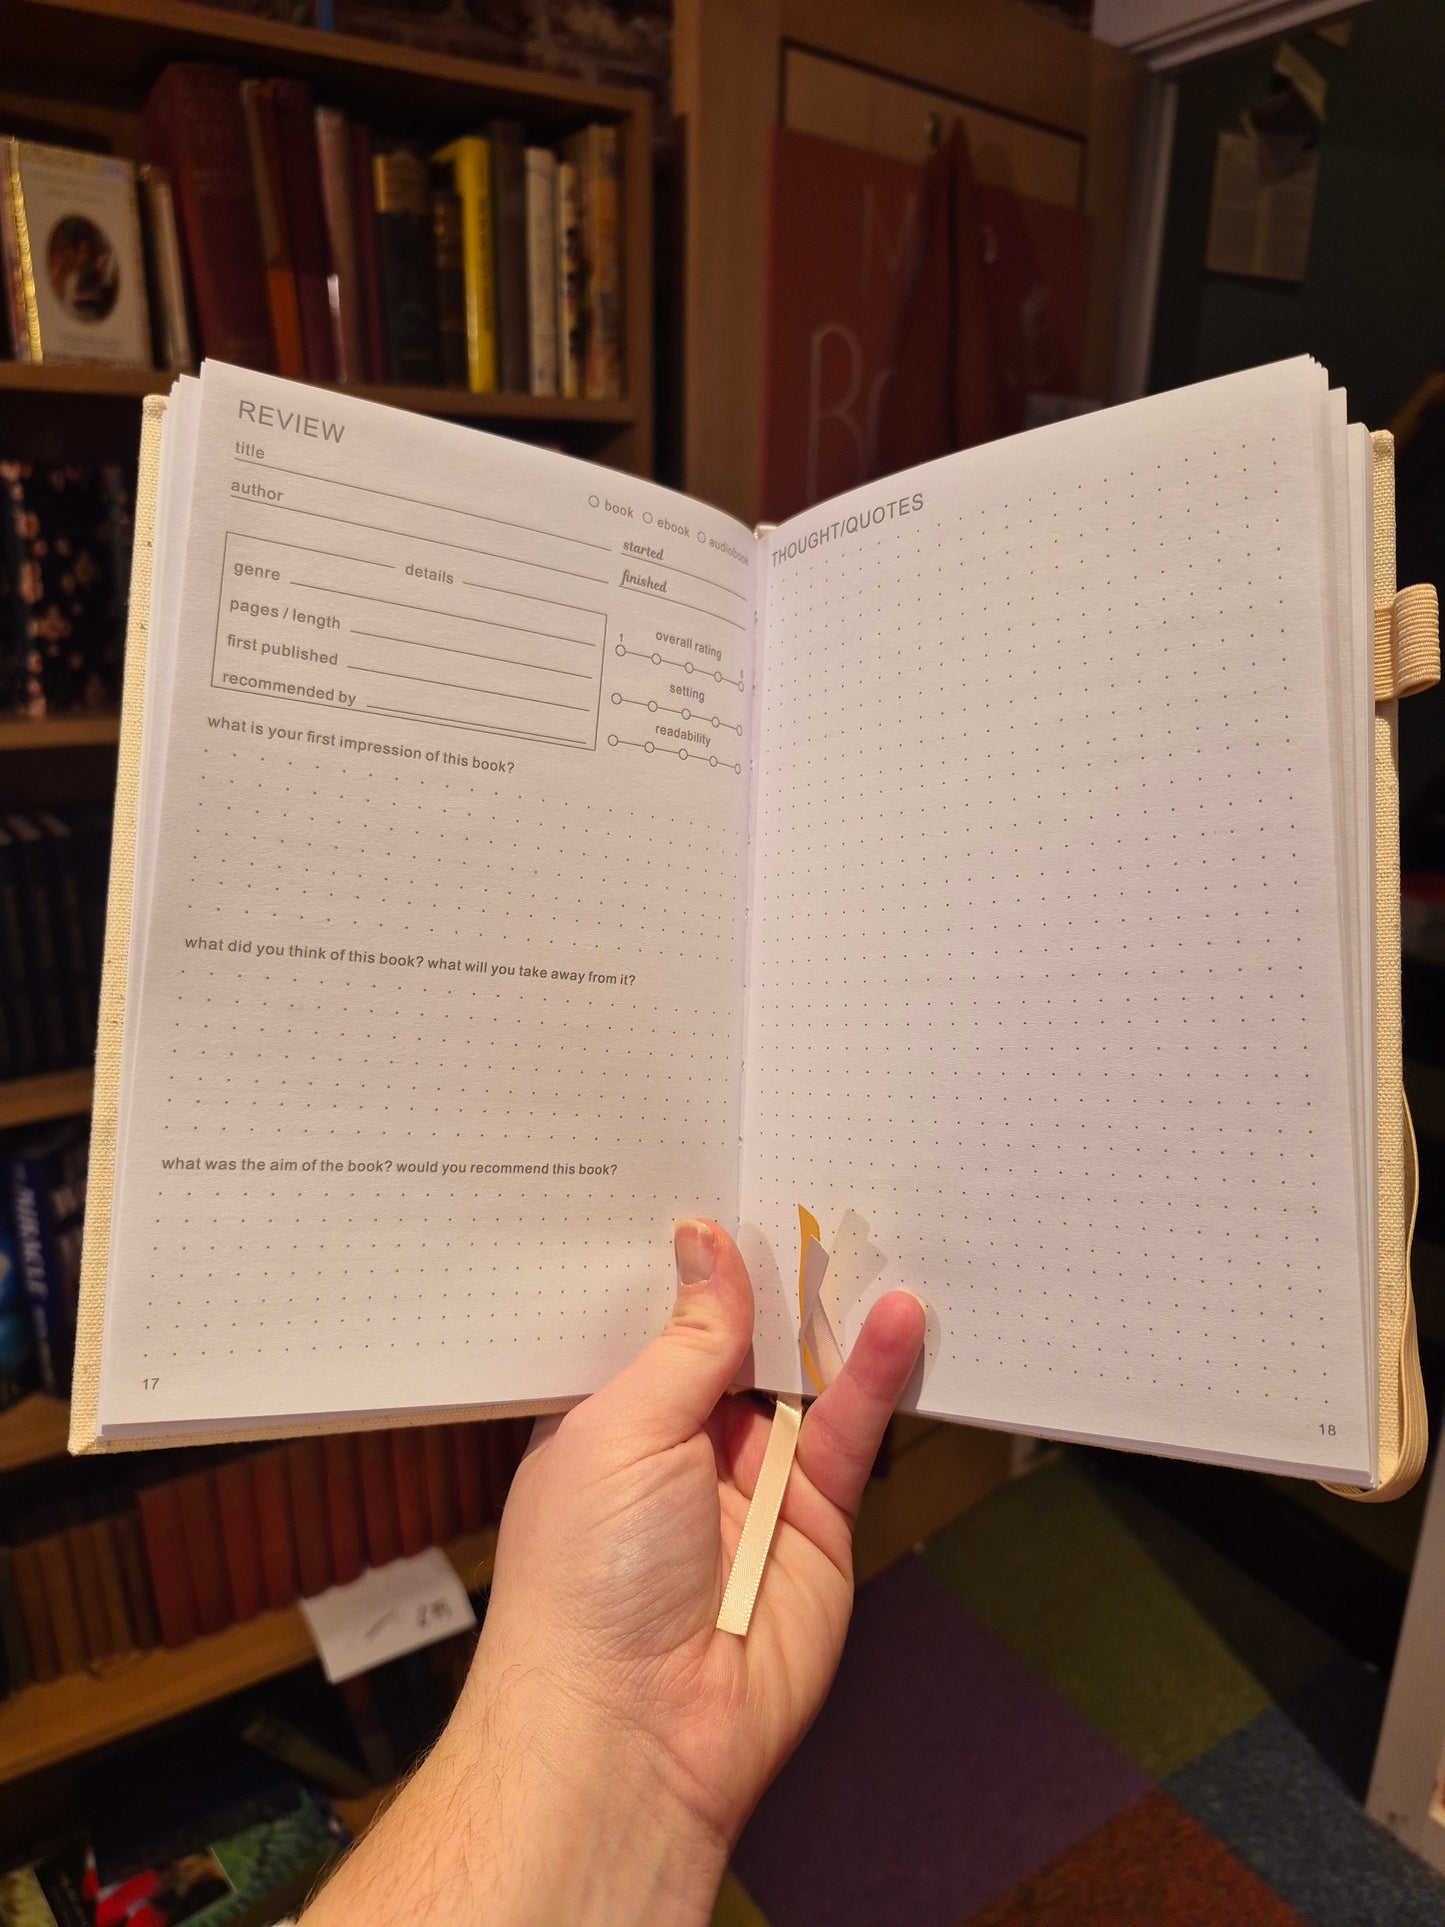 REVIEW
title
author
book ebook audiobook
started
finished
details
genre
pages / length
first published
recommended by
1 overall rating 5
setting
readability
what is your first impression of this book?
what did you think of this book? what will you take away from it?
what was the aim of the book? would you recommend this book?
17
THOUGHT/QUOTES
18